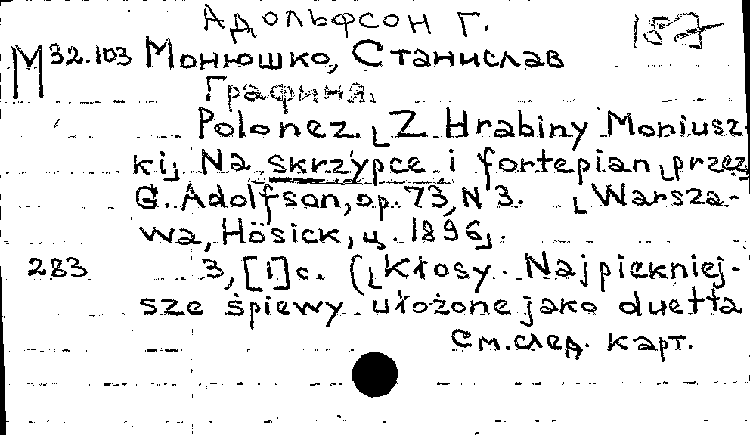 Адольфсон Г.
157
М 32.103 Монюшко, Станислав
Графиня.
Polonez [Z Hrabiny Moniusz-
ki] Na skrzypce i fortepian [przez
G. Adolfson, op. 73, N 3. [Warsza-
wa, Hösick, ц. 1896].
283 3, [1] с. ([Kłosy. Najpiekniej-
sze śpiewy ułożone jako duetta
См. след. карт.